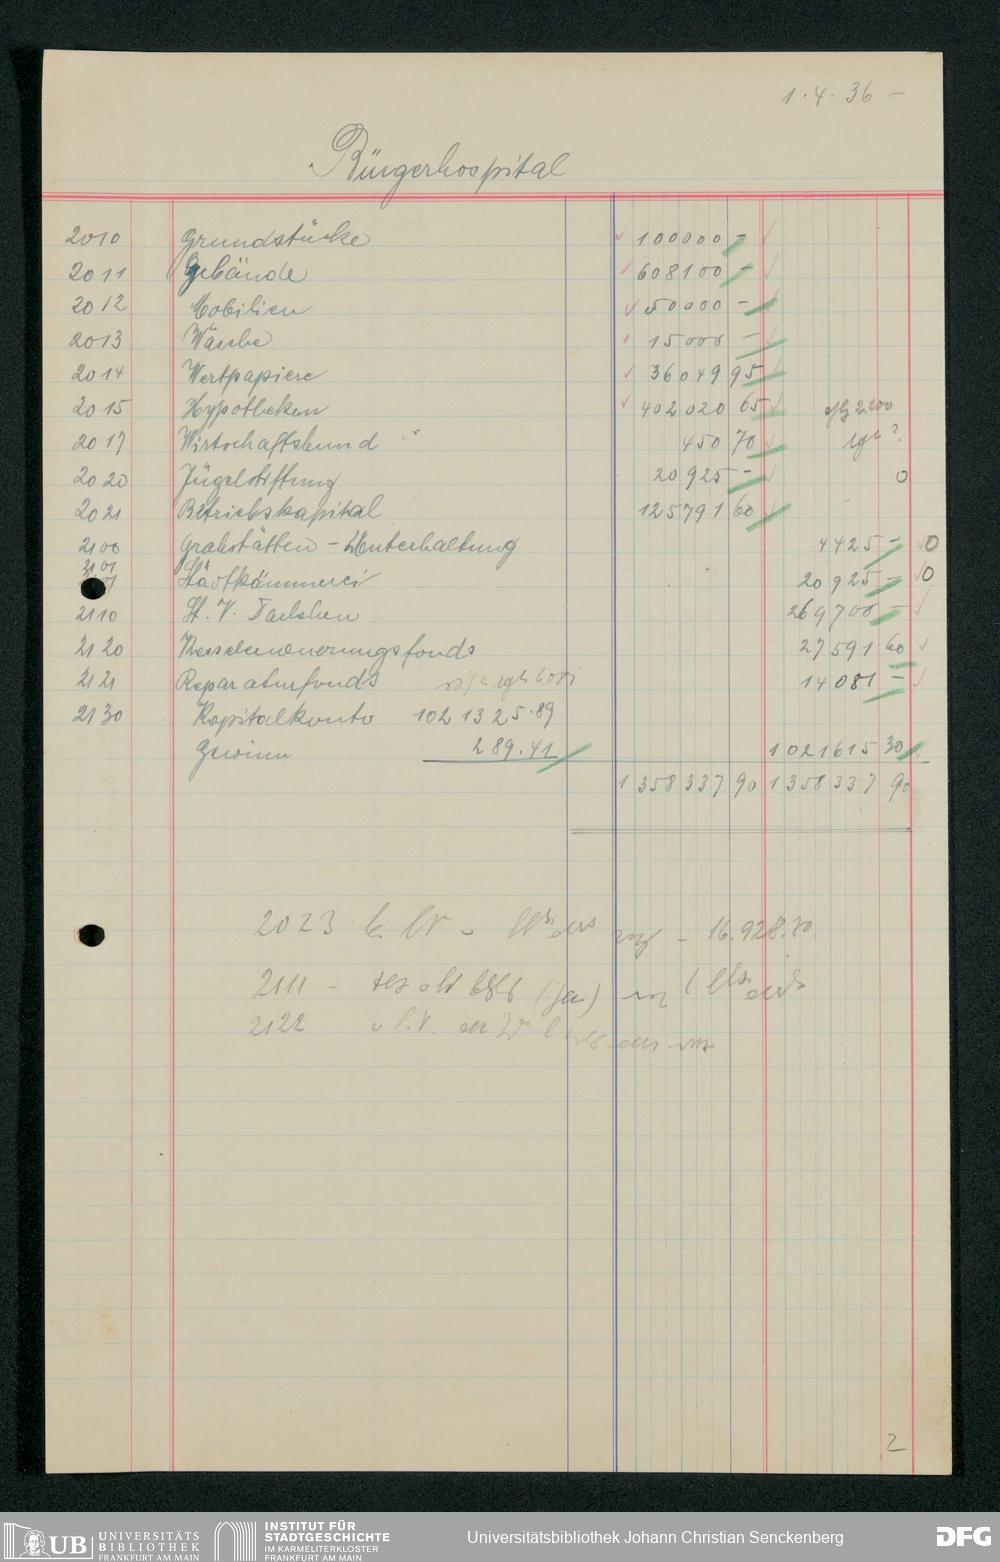 1.4.36 –
Bürgerhospital
2010 Grundstücke 100000 –
2011 Gebäude 608100 –
2012 Mobilien 50000 –
2013 Wäsche 15000 –
2014 Wertpapiere 36049 95
2015 Hypotheken 402020 65
2017 Wirtschaftsbund 450 70
2020 Jügelstiftung 20925 – 0
2021 Betriebskapital 125791 60
2100 Grabstätten – Unterhaltung 4425 – 0
2101 Stadtkämmerei 20925 – 0
2110 St. V. Darlehen 269700 –
2120 Hauserneuerungsfonds 27591 60
2121 Reparaturfonds 14081 –
2130 Kapitalkonto 1021325.89
Gewinn 289.41 1021615 30
1358337 90 1358337 90
2023 – 16.928.70
2111 –
2122
2
UB UNIVERSITÄTS BIBLIOTHEK FRANKFURT AM MAIN
INSTITUT FÜR STADTGESCHICHTE IM KARMELITERKLOSTER FRANKFURT AM MAIN
Universitätsbibliothek Johann Christian Senckenberg
DFG